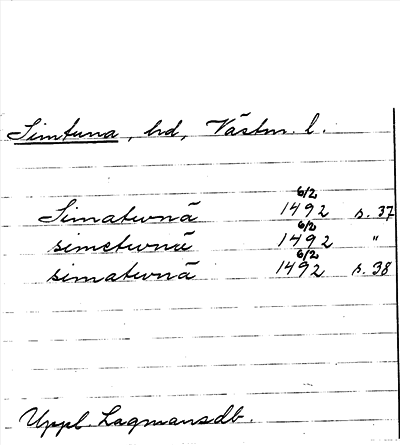 Simtuna, hd, Västm. l.
Simatwnä 6/2 1492 s. 37
simetwnä 6/2 1492 "
simatwnä 6/2 1492 s. 38
Uppl. Lagmansdb.